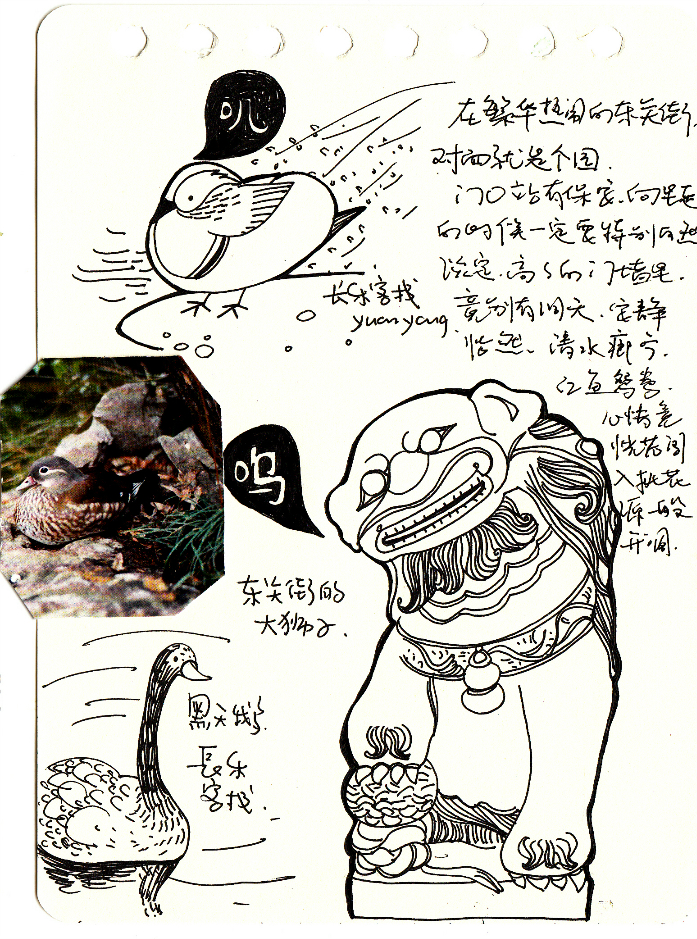 叽
在繁华热闹的东关街,
对面就是个园.
门口站有保安.向里走
的时候一定要特别自然
淡定.高高的门墙里.
竟别有洞天.定静
怡然、清水廊亭.
红鱼鸳鸯.
心情竟
恍若闯
入桃花
源一般
开阔.
长乐客栈
yuanyang.
呜
东关街的
大狮子.
黑天鹅.
長乐
客栈.